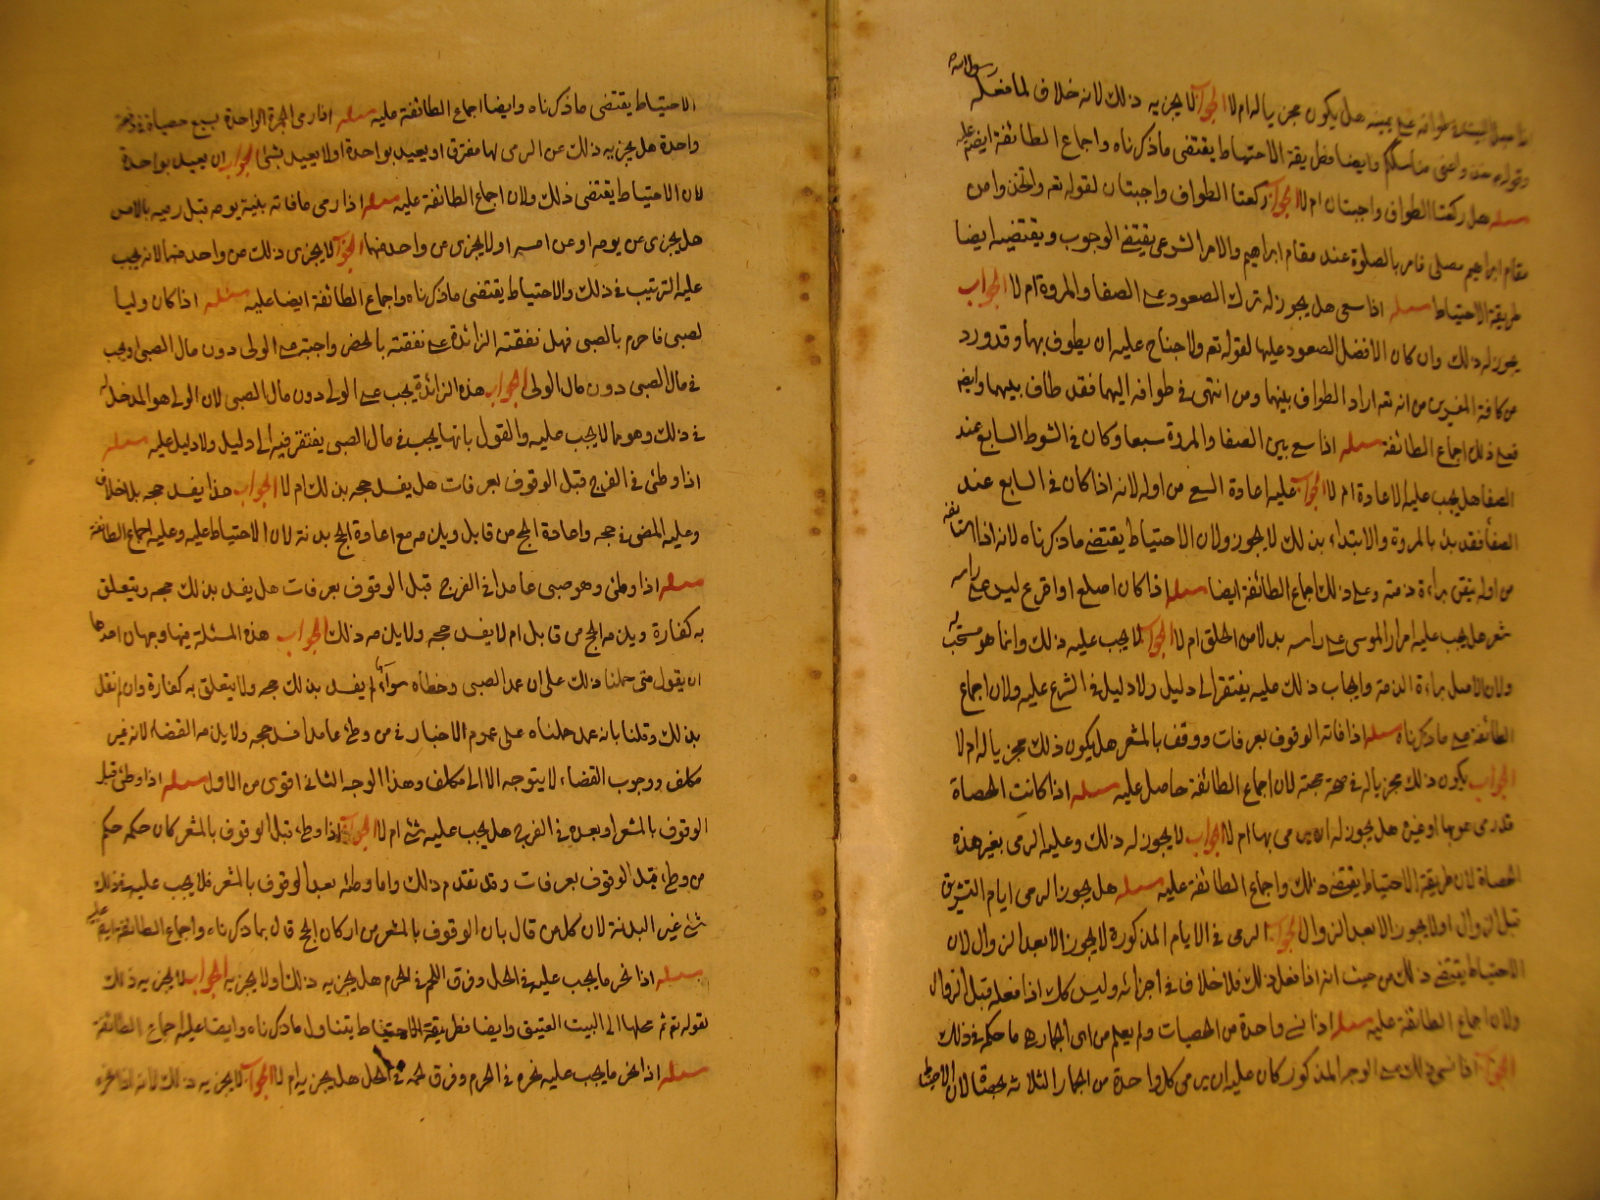 رسول الله
طوافه على يمينه هل يكون مجزيا له ام لا الجواب لا يجزيه ذلك لانه خلاف لما فعله
وقوله خذوا عنى مناسككم وايضا فطريقة الاحتياط يقتضى ماذكرناه واجماع الطائفة ايضا عليه
مسئله هل ركعتا الطواف واجبتان ام لا الجواب ركعتا الطواف واجبتان لقوله تعه واتخذوا من
مقام ابراهيم مصلى فامر بالصلوة عند مقام ابراهيم والامر الشرعى يقتضى الوجوب ويقتضيه ايضا
طريقة الاحتياط مسئله اذا سعى هل يجوز له ترك الصعود على الصفا والمروة ام لا الجواب
يجوز له ذلك وان كان الافضل الصعود عليها لقوله تعه ولا جناح عليه ان يطوف بهما وقد ورد
من كافة المفسرين من انه تعه اراد الطواف بينهما ومن انتهى فى طوافه اليهما فقد طاف بينهما وايضا
فعلى ذلك اجماع الطائفة مسئله اذا سعى بين الصفا والمروة سبعا وكان فى الشوط السابع عند
الصفا هل يجب عليه الاعادة ام لا الجواب عليه اعادة السعى من اوله لانه اذا كان فى السابع عند
الصفا فقد بدء بالمروة والابتداء بذلك لا يجوز ولان الاحتياط يقتضى ماذكرناه لانه اذا استانفه
من اوله تيقن براءة ذمته وعلى ذلك اجماع الطائفة ايضا مسئله اذا كان اصلع او اقرع ليس على راسه
شعر هل يجب عليه امرار الموسى على راسه بدلا من الحلق ام لا الجواب لا يجب عليه ذلك وانما هو مستحب له
ولان الاصل براءة الذمة وايجاب ذلك عليه يفتقر الى دليل ولا دليل فى الشرع عليه ولان اجماع
الطائفة على ماذكرناه مسئله اذا فاته الوقوف بعرفات ووقف بالمشعر هل يكون ذلك مجزيا له ام لا
الجواب يكون ذلك مجزيا له فى صحة حجته لان اجماع الطائفة حاصل عليه مسئله اذا كانت الحصاة
قد رمى بها هو او غيره هل يجوز له ان يرمى بها ام لا الجواب لا يجوز له ذلك وعليه الرمى بغير هذه
الحصاة لان طريقة الاحتياط يقتضى ذلك واجماع الطائفة عليه مسئله هل يجوز الرمى ايام التشريق
قبل الزوال او لا يجوز الا بعد الزوال الجواب الرمى فى الايام المذكورة لا يجوز الا بعد الزوال لان
الاحتياط يقتضى ذلك من حيث انه اذا فعل ذلك فلا خلاف فى اجزائه وليس كك اذا فعله قبل الزوال
ولان اجماع الطائفة عليه مسئله اذا نسى واحدة من الحصيات ولم يعلم من اى الجمار هى ما حكمه فى ذلك
الجواب اذا نسى ذلك على الوجه المذكور كان عليه ان يرمى كل واحدة من الجمار الثلاثة بحصاة لان الاحتياط
الاحتياط يقتضى ماذكرناه وايضا اجماع الطائفة عليه مسئله اذا رمى الجمرة الواحدة بسبع حصياة فى دفعة
واحدة هل يجزيه ذلك عن الرمى لها مفترق او يعيد بواحدة او لا يعيد بشئ الجواب ان يعيد بواحدة
لان الاحتياط يقتضى ذلك ولان اجماع الطائفة عليه مسئله اذا رمى مافاته بنية يومه قبل رميه بالامس
هل يجزى عن يومه او عن امسه او لا يجزى عن واحد منها الجواب لا يجزى ذلك عن واحد منها لانه يجب
عليه الترتيب فى ذلك والاحتياط يقتضى ماذكرناه واجماع الطائفة ايضا عليه مسئله اذا كان وليا
لصبى فاحرم بالصبى فهل نفقته الزائدة على نفقته بالحضر واجبة على الولى دون مال الصبى او يجب
فى مال الصبى دون مال الولى الجواب هذه الزائدة يجب على الولى دون مال الصبى لان الولى هو المدخل له
فى ذلك وهو مما لا يجب عليه والقول بانها يجب فى مال الصبى يفتقر فيه الى دليل ولا دليل عليه مسئله
اذا وطئ فى الفرج قبل الوقوف بعرفات هل يفسد حجه بذلك ام لا الجواب هذا يفسد حجه بلا خلاف
وعليه المضى فى حجه واعادة الحج من قابل ويلزمه مع اعادة الحج بدنة لان الاحتياط عليه وعليه اجماع الطائفة
مسئله اذا وطئ وهو صبى عامدا فى الفرج قبل الوقوف بعرفات هل يفسد بذلك حجه ويتعلق
به كفارة ويلزمه الحج من قابل ام لا يفسد حجه ولا يلزمه ذلك الجواب هذه المسئلة فيها وجهان احدهما
ان يقول متى حملنا ذلك على ان عمد الصبى وخطاه سواء لم يفسد بذلك حجه ولا يتعلق به كفارة وان لم نقل
بذلك وقلنا بانه عمد حملناه على عموم الاخبار فى من وطئ عامدا فسد حجه ولا يلزمه القضاء لانه غير
مكلف ووجوب القضاء لا يتوجه الا الى مكلف وهذا الوجه الثانى اقوى من الاول مسئله اذا وطئ قبل
الوقوف بالمشعر او بعده فى الفرج هل يجب عليه شئ ام لا الجواب اذا وطئ قبل الوقوف بالمشعر كان حكمه حكم
من وطئ قبل الوقوف بعرفات وقد تقدم ذلك واما وطئه بعد الوقوف بالمشعر فلا يجب عليه فى ذلك
شئ غير البدنة لان كل من قال بان الوقوف بالمشعر من اركان الحج قال بما ذكرناه واجماع الطائفة ايضا عليه
مسئله اذا نحر ما يجب عليه فى الحل وفرق اللحم فى الحرم هل يجزيه ذلك او لا يجزيه الجواب لا يجزيه ذلك
لقوله تع ثم محلها الى البيت العتيق وايضا فطريقة الاحتياط يتناول ماذكرناه وايضا عليه اجماع الطائفة
مسئله اذا نحر ما يجب عليه نحره فى الحرم وفرق لحمه فى الحل هل يجزيه ام لا الجواب لا يجزيه ذلك لانه